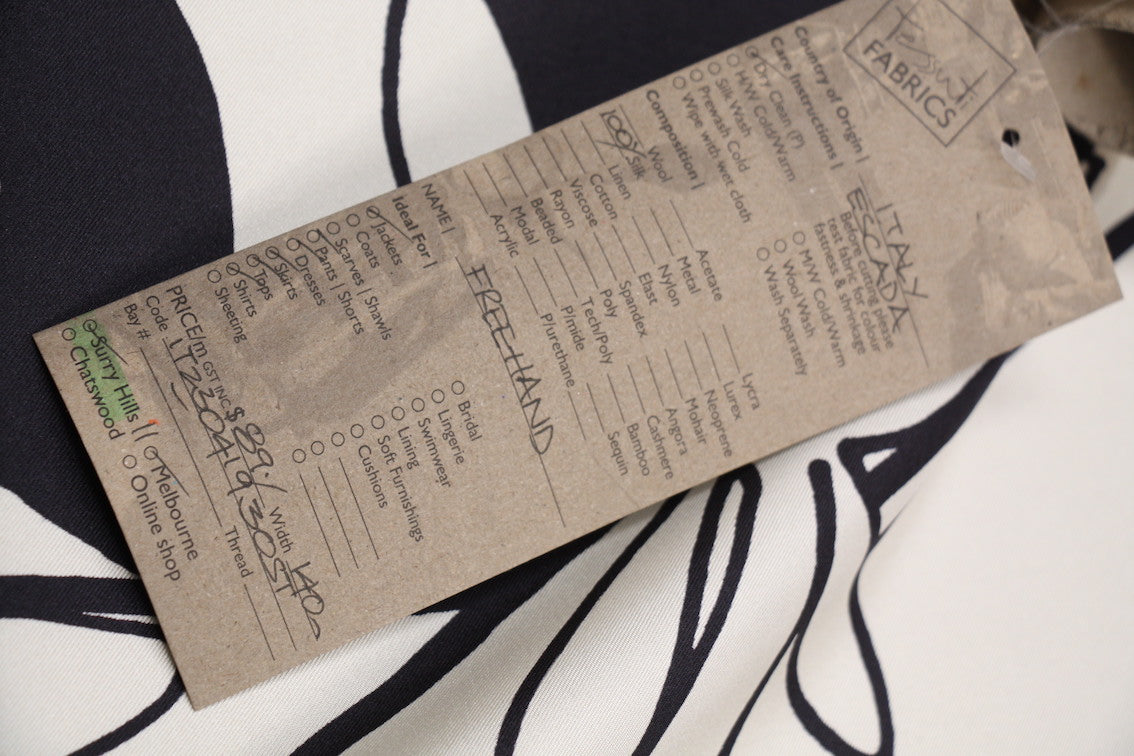 Tessuti
FABRICS
Country of Origin | ITALY
ESCADA
Care Instructions |
Before cutting please
test fabric for colour
fastness & shrinkage
Dry Clean (P)
H/W Cold/Warm
Silk Wash
Prewash Cold
Wipe with wet cloth
M/W Cold/Warm
Wool Wash
Wash Separately
Composition |
Wool
100% Silk
Linen
Cotton
Viscose
Rayon
Beaded
Modal
Acrylic
Acetate
Metal
Nylon
Elast
Spandex
Poly
Tech/Poly
P/mide
P/urethane
Lycra
Lurex
Neoprene
Mohair
Angora
Cashmere
Bamboo
Sequin
NAME | FREEHAND
Ideal For |
Jackets
Coats
Scarves | Shawls
Pants | Shorts
Dresses
Skirts
Tops
Shirts
Sheeting
Bridal
Lingerie
Swimwear
Lining
Soft Furnishings
Cushions
PRICE/m GST INC $ 89.- Width 140
Code IT23041930ST
Bay # Thread
Surry Hills
Chatswood
Melbourne
Online shop